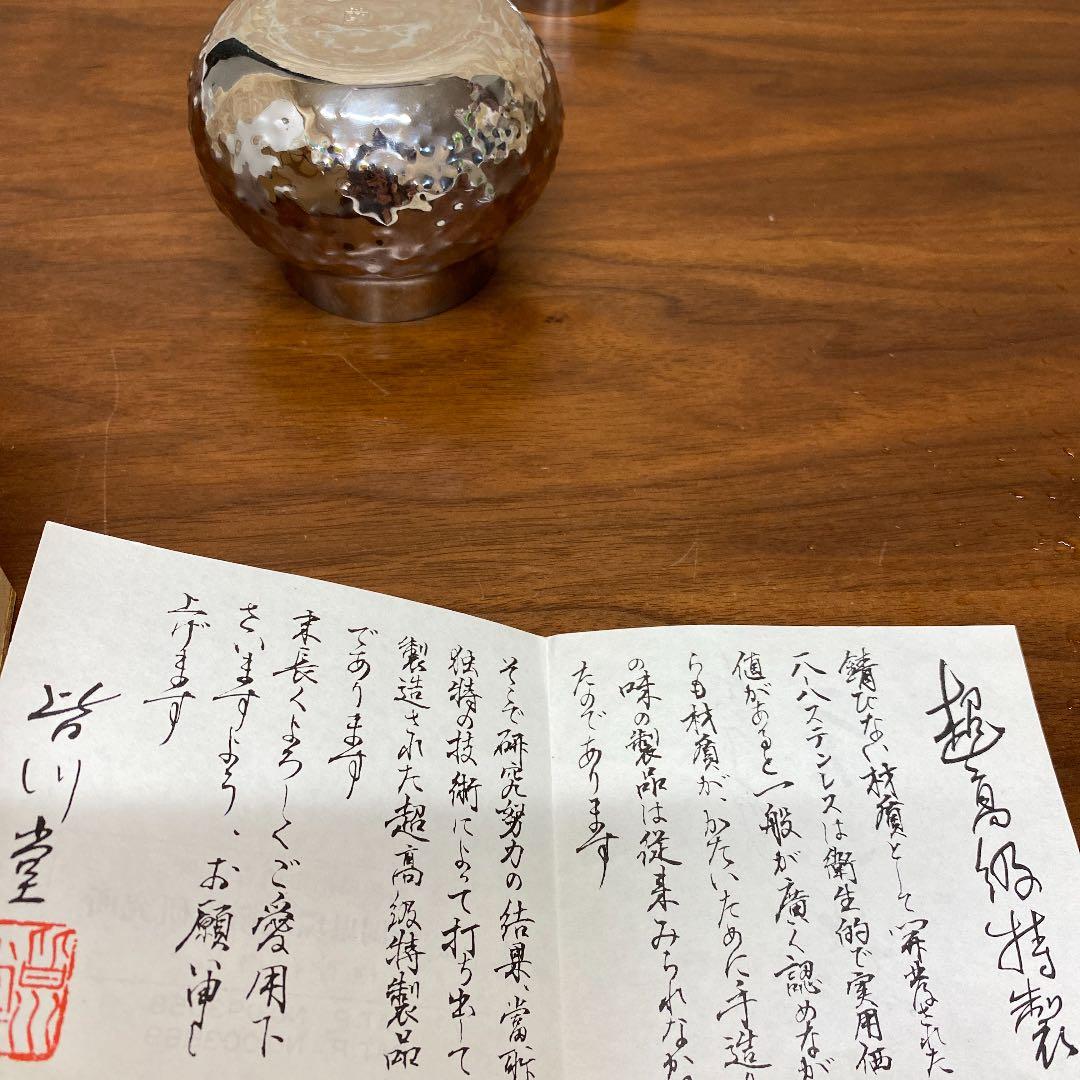 超高級特製
錆びない材質として開発された
一八-八ステンレスは衛生的で実用価
値があると一般が廣く認めなが
らも材質が、かたいために手造り
の味の製品は従来みられなか
たのであります
そこで研究努力の結果、當
独特の技術によって打ち出して
製造された超高級特製品
であります
末長くよろしくご愛用下
さいますよう、お願い申し
上げます
皆川堂